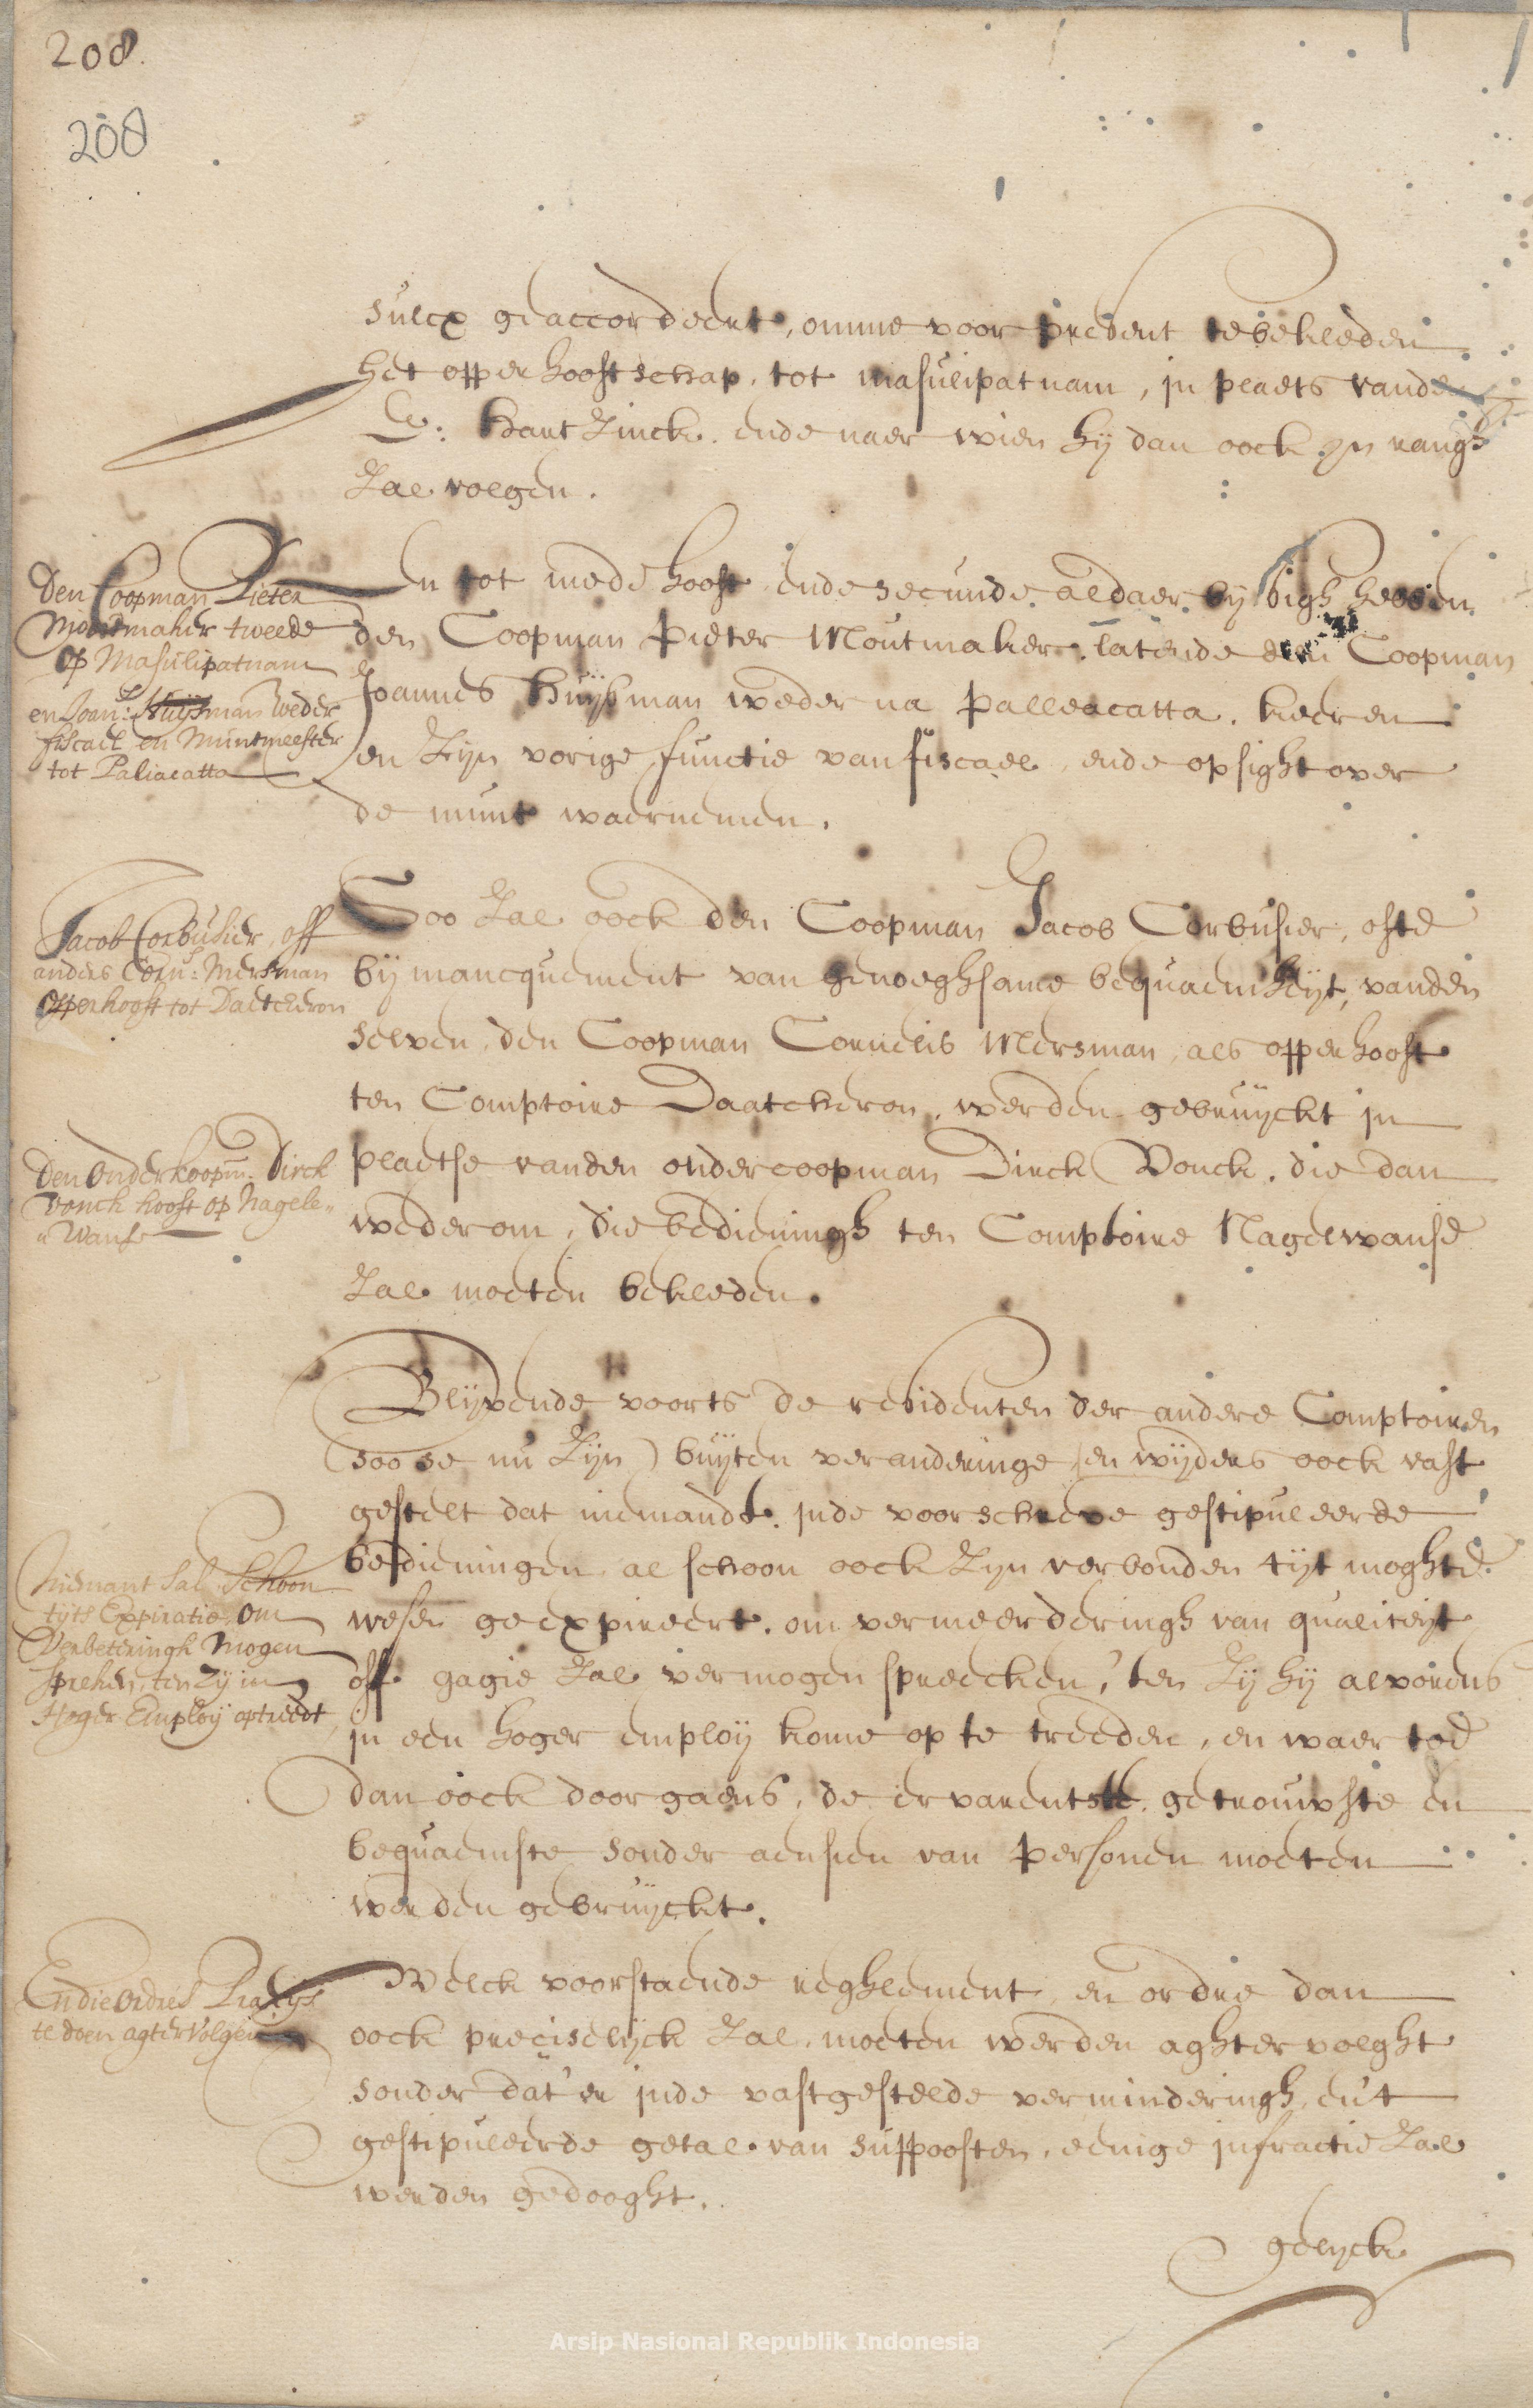 208.
208
sulcx geaccordeert, omme voor present te bekleden
het opperhooftschap, tot masulipatnam, in plaets vande
E: Hartzinck. ende naer wien hij dan oock in rangh
zal volgen.
Den Coopman Pieter
Moutmaker tweede
op Masulipatnam
en Joan: Huijsman weder
fiscael en Muntmeester
tot Paliacatta
En tot mede hooft ende secunde aldaer bij sigh hebben
den Coopman Pieter Moutmaker. latende den Coopman
Joannes Huijsman weder na Palleacatta. keeren
en zijn vorige functie van fiscael, ende opsight over
de munt waernemen.
Jacob Corbusier, off
anders Corn: Mersman
opperhooft tot Daetcheron
Soo zal oock den Coopman Jacob Corbusier, ofte
bij mancquement van genoeghsame bequaemheijt, vanden
selven, den Coopman Cornelis Mersman, als opperhooft
ten Comptoire Daatcheron, werden gebruijckt in
plaetse vanden ondercoopman Dirck Vonck. die dan
wederom, die bedieningh ten Comptoire Nagelwanse
zal moeten bekleden.
Den Onderkoopm: Dirck
Vonck hooft op Nagele„
„Wanse
Blijvende voorts de residenten der andere Comptoiren
(soo se nu zijn) buijten veranderinge, en wijders oock vast
gestelt dat niemandt. inde voorschreve gestipuleerde
bedieningen al schoon oock zijn verbonden tijt moghte
wesen geexpireert. om vermeerderingh van qualiteijt
off gagie zal vermogen spreecken, ten zij hij alvorens
in een hoger employ kome op te treeden, en waer toe
dan oock doorgaens, de ervarentste, getrouwste en
bequaemste sonder aensien van personen moeten
werden gebruijckt.
Niemant sal schoon
tijts Expiratie, om
Verbeteringh Mogen
spreken, ten zij in
Hoger Employ optreedt,
Welck voorstaende reghlement, en ordre dan
oock preciselijck zal, moeten werden aghtervolght
sonder dat'er inde vastgestelde verminderingh, en't
gestipuleerde getal. van suppoosten, eenige infractie zal
werden gedooght.
En die ordres
te doen agtervolgen
gelijck
Arsip Nasional Republik Indonesia